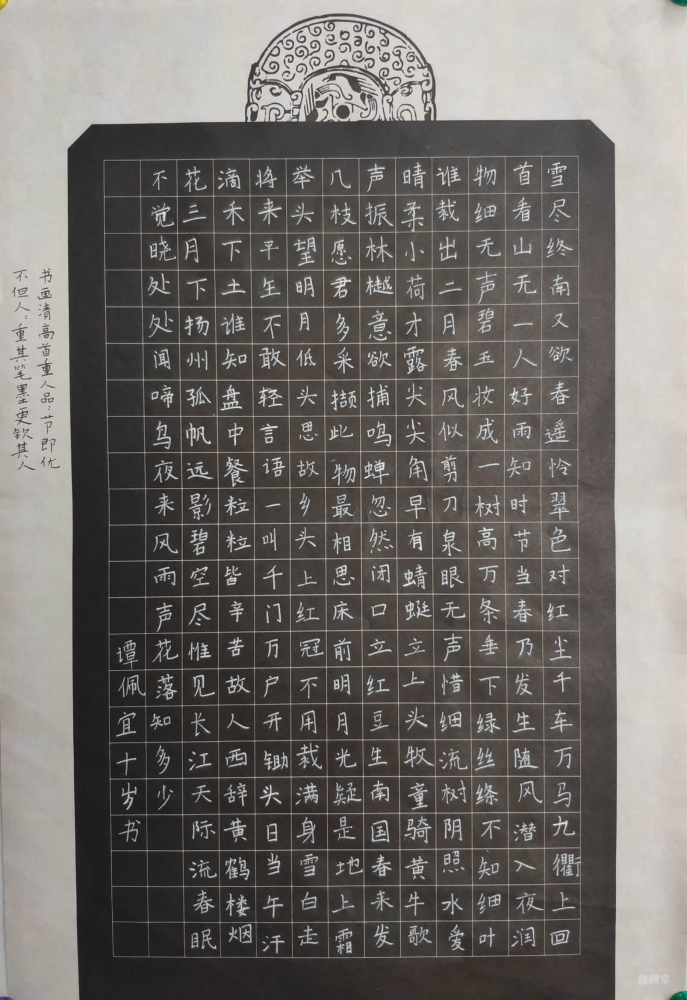 雪尽终南又欲春遥怜翠色对红尘千车万马九衢上回
首看山无一人好雨知时节当春乃发生随风潜入夜润
物细无声碧玉妆成一树高万条垂下绿丝绦不知细叶
谁裁出二月春风似剪刀泉眼无声惜细流树阴照水爱
晴柔小荷才露尖尖角早有蜻蜓立上头牧童骑黄牛歌
声振林樾意欲捕鸣蝉忽然闭口立红豆生南国春来发
几枝愿君多采撷此物最相思床前明月光疑是地上霜
举头望明月低头思故乡头上红冠不用裁满身雪白走
将来平生不敢轻言语一叫千门万户开锄头日当午汗
滴禾下土谁知盘中餐粒粒皆辛苦故人西辞黄鹤楼烟
花三月下扬州孤帆远影碧空尽惟见长江天际流春眠
不觉晓处处闻啼鸟夜来风雨声花落知多少
谭佩宜十岁书
书画清高首重人品：节即优
不但人：重其笔墨更钦其人